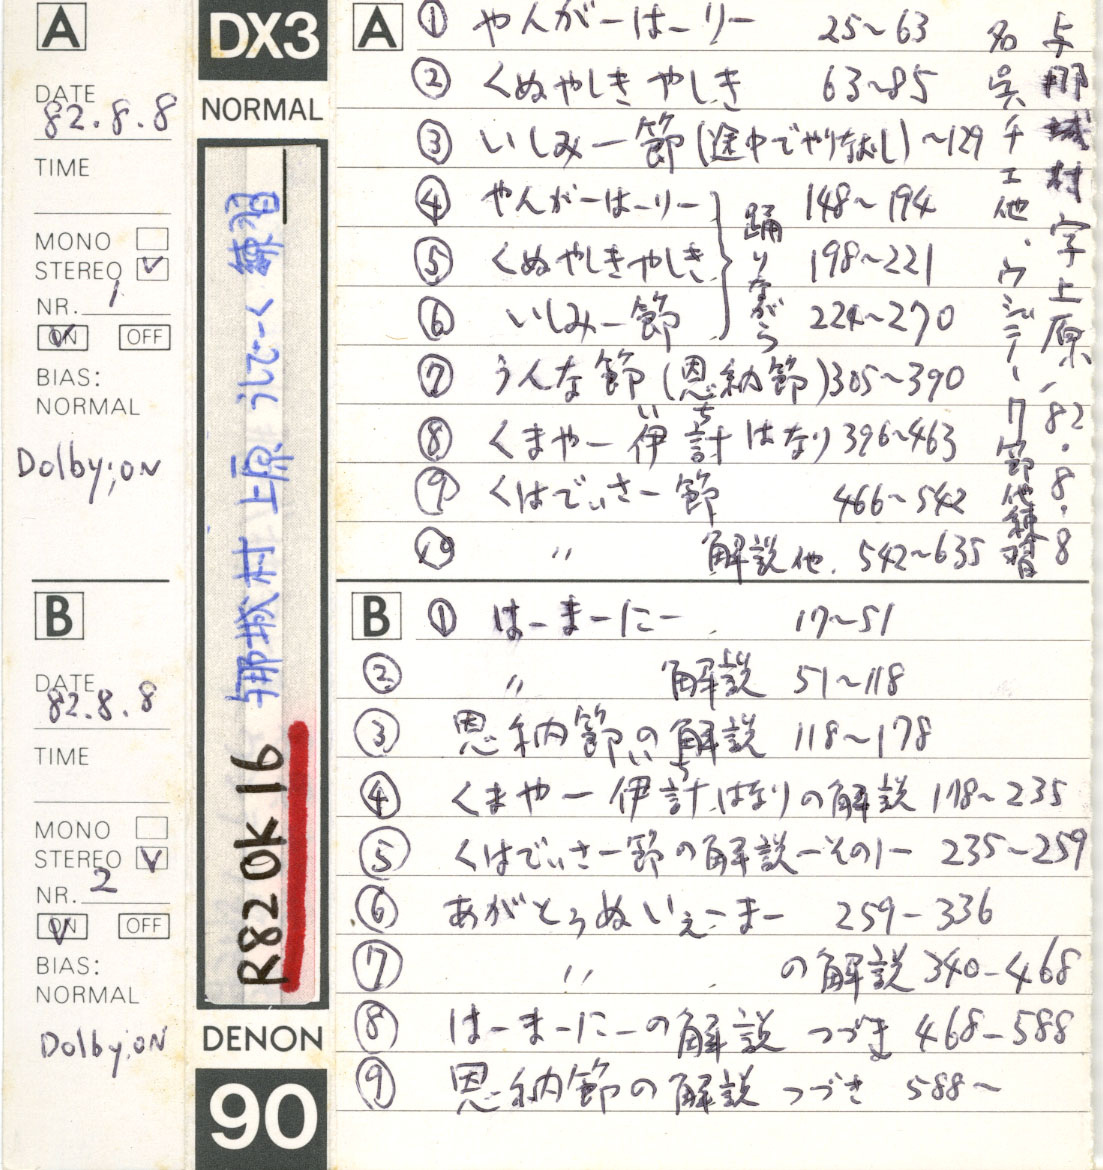 A
DATE
82.8.8
TIME
MONO
STEREO
NR. 1
ON OFF
BIAS:
NORMAL
Dolby;ON
B
DATE
82.8.8
TIME
MONO
STEREO
NR. 2
ON OFF
BIAS:
NORMAL
Dolby;ON
DX3
NORMAL
与那城村 上原 うしでーく 練習
R82OK16
DENON
90
A
① やんがーはーりー 25~63
② くぬやしき やしき 63~85
③ いしみー節(途中でやりなおし)~129
④ やんがーはーりー 148~194
⑤ くぬやしきやしき 198~221
⑥ いしみー節 224~270
踊りながら
⑦ うんな節(恩納節)305~390
⑧ くまやー伊計はなり 396~463
いち
⑨ くはでぃさー節 466~542
⑩ 〃 解説他. 542~635
与那城村字上原,82.8.8
名呉チエ他・ウシデーク節他練習
B
① はーまーにー 17~51
② 〃 解説 51~118
③ 恩納節の解説 118~178
④ くまやー伊計はなりの解説 178~235
いち
⑤ くはでぃさー節の解説-その1- 235~259
⑥ あがとぅぬいぇーまー 259-336
⑦ 〃 の解説 340-468
⑧ はーまーにーの解説 つづき 468-588
⑨ 恩納節の解説 つづき 588~